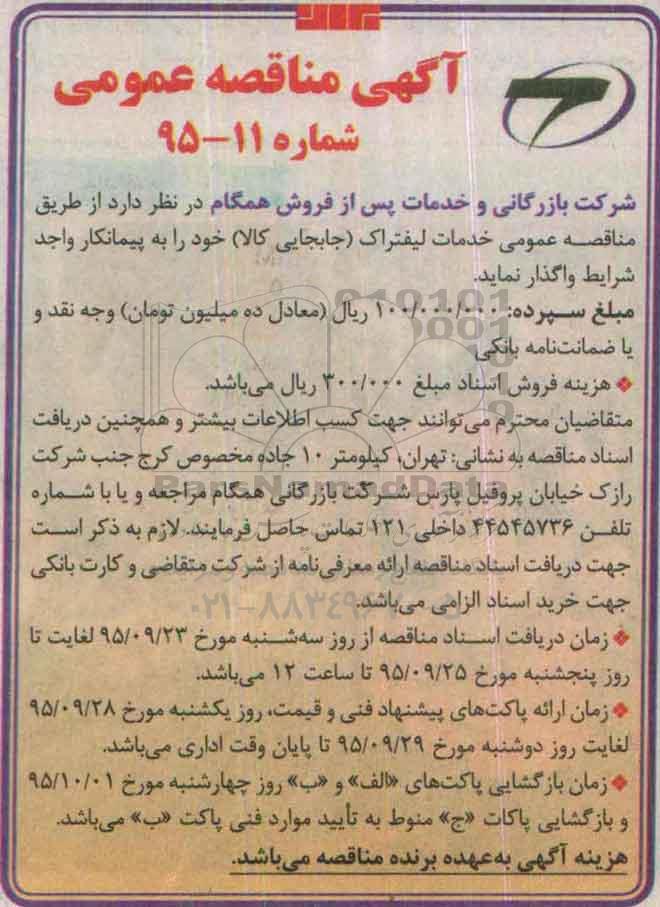 آگهی مناقصه عمومی
شماره ۱۱-۹۵
شرکت بازرگانی و خدمات پس از فروش همگام در نظر دارد از طریق
مناقصه عمومی خدمات لیفتراک (جابجایی کالا) خود را به پیمانکار واجد
شرایط واگذار نماید.
مبلغ سپرده: ۱۰۰/۰۰۰/۰۰۰ ریال (معادل ده میلیون تومان) وجه نقد و
یا ضمانت‌نامه بانکی
هزینه فروش اسناد مبلغ ۳۰۰/۰۰۰ ریال می‌باشد.
متقاضیان محترم می‌توانند جهت کسب اطلاعات بیشتر و همچنین دریافت
اسناد مناقصه به نشانی: تهران، کیلومتر ۱۰ جاده مخصوص کرج جنب شرکت
رازک خیابان پروفیل پارس شرکت بازرگانی همگام مراجعه و یا با شماره
ParsNamadData
تلفن ۴۴۵۴۵۷۳۶ داخلی ۱۲۱ تماس حاصل فرمایند. لازم به ذکر است
جهت دریافت اسناد مناقصه ارائه معرفی‌نامه از شرکت متقاضی و کارت بانکی
جهت خرید اسناد الزامی می‌باشد.
زمان دریافت اسناد مناقصه از روز سه‌شنبه مورخ ۹۵/۰۹/۲۳ لغایت تا
روز پنجشنبه مورخ ۹۵/۰۹/۲۵ تا ساعت ۱۲ می‌باشد.
زمان ارائه پاکت‌های پیشنهاد فنی و قیمت، روز یکشنبه مورخ ۹۵/۰۹/۲۸
لغایت روز دوشنبه مورخ ۹۵/۰۹/۲۹ تا پایان وقت اداری می‌باشد.
زمان بازگشایی پاکت‌های «الف» و «ب» روز چهارشنبه مورخ ۹۵/۱۰/۰۱
و بازگشایی پاکات «ج» منوط به تأیید موارد فنی پاکت «ب» می‌باشد.
هزینه آگهی به‌عهده برنده مناقصه می‌باشد.